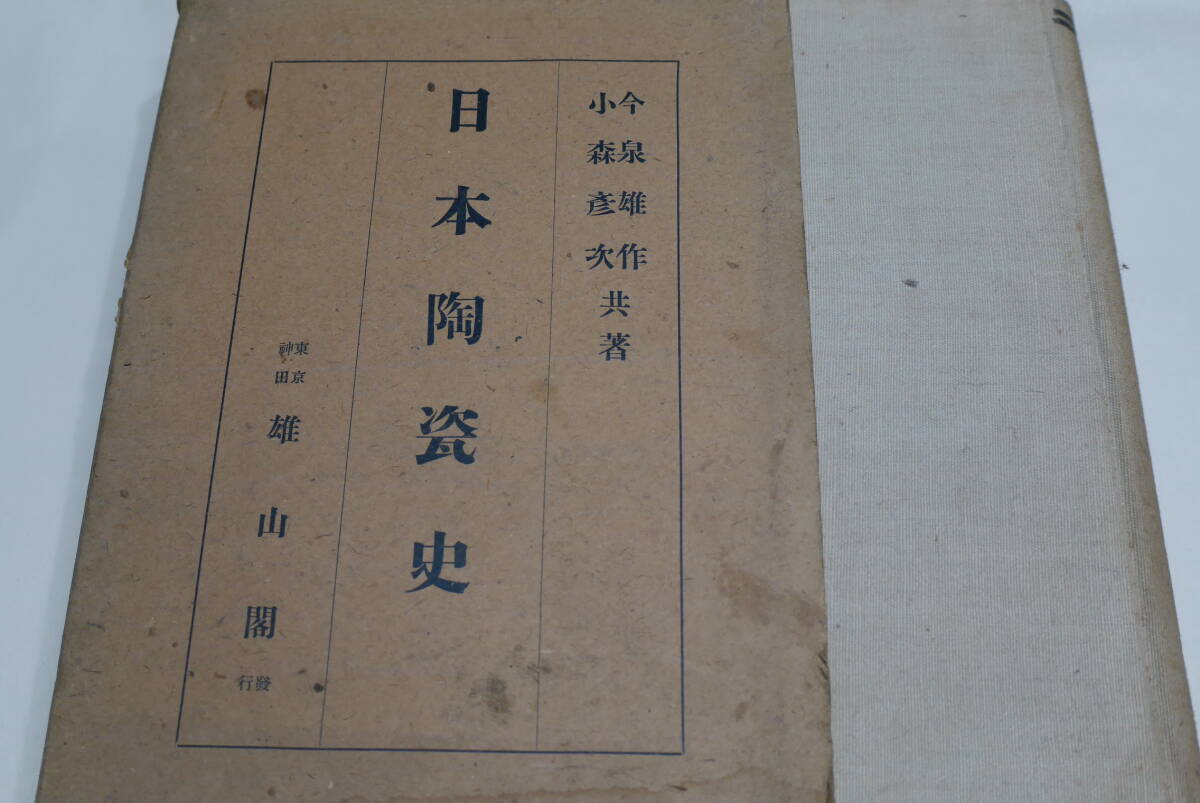 今泉雄作
小森彥次
共著
日本陶瓷史
東京
神田
雄山閣
發行